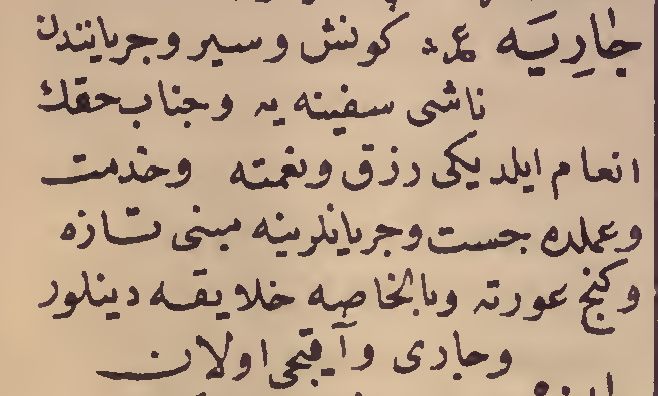 جَارِيَه عم‍ـ كونش و سير و جرياننندن
ناشى سفينه يه و جناب حقك
انعام ايلديكى رزق و نعمته و خدمت
و عملده جست و جريانلرينه مبنى تازه
و كنج عورته و بالخاصه خلايقه دينلور
و جارى و آقيجى اولان